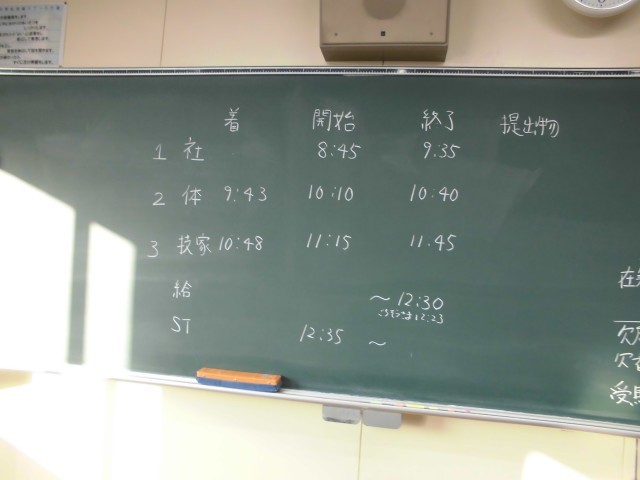 着 開始 終了 提出物
1 社 8:45 9:35
2 体 9:43 10:10 10:40
3 技家 10:48 11:15 11.45
給 ～12:30
ごちそうさま12:23
ST 12:35 ～
在
欠
欠
受